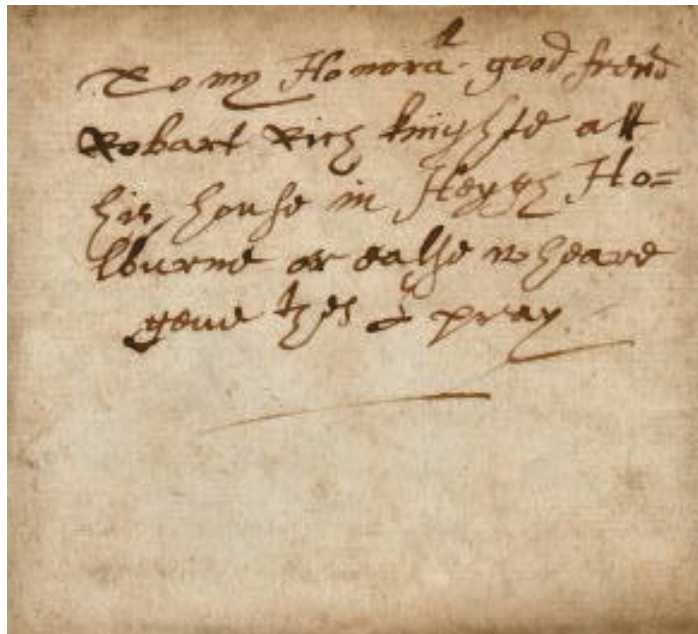 To my Honora^ll. good frend
Robart Rich knighte att
his house in Heygh Ho=
lburne or ealse wheare
geue thes I pray.